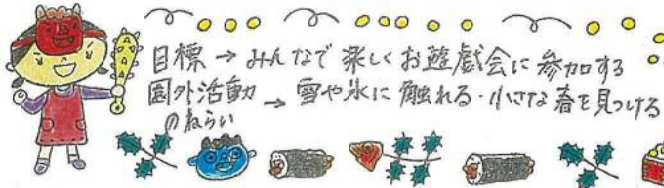 目標 → みんなで 楽しく お遊戯会に 参加する
園外活動 → 雪や氷に 触れる・小さな 春を 見つける
のねらい